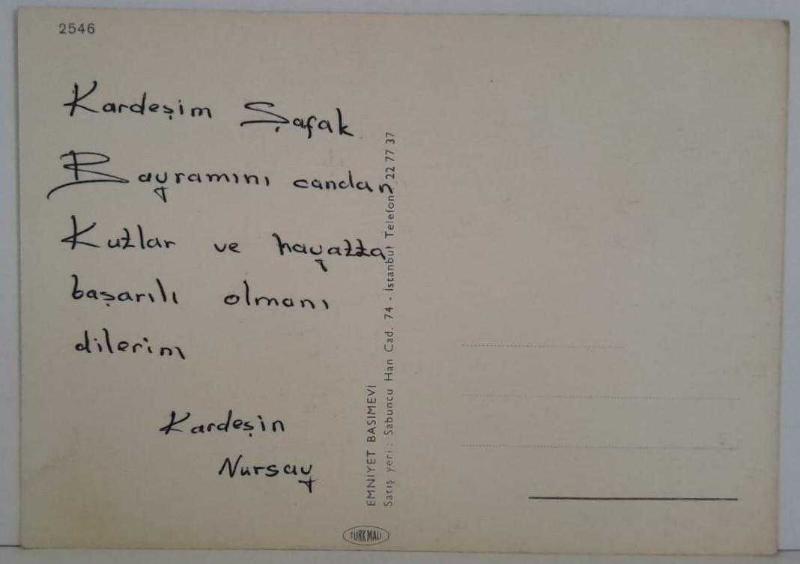 2546
Kardeşim Şafak
Bayramını candan
Kutlar ve hayatta
başarılı olmanı
dilerim
Kardeşin
Nursay
EMNİYET BASIMEVİ
Satış yeri : Sabuncu Han Cad. 74 - İstanbul Telefon 22 77 37
TÜRK MALI